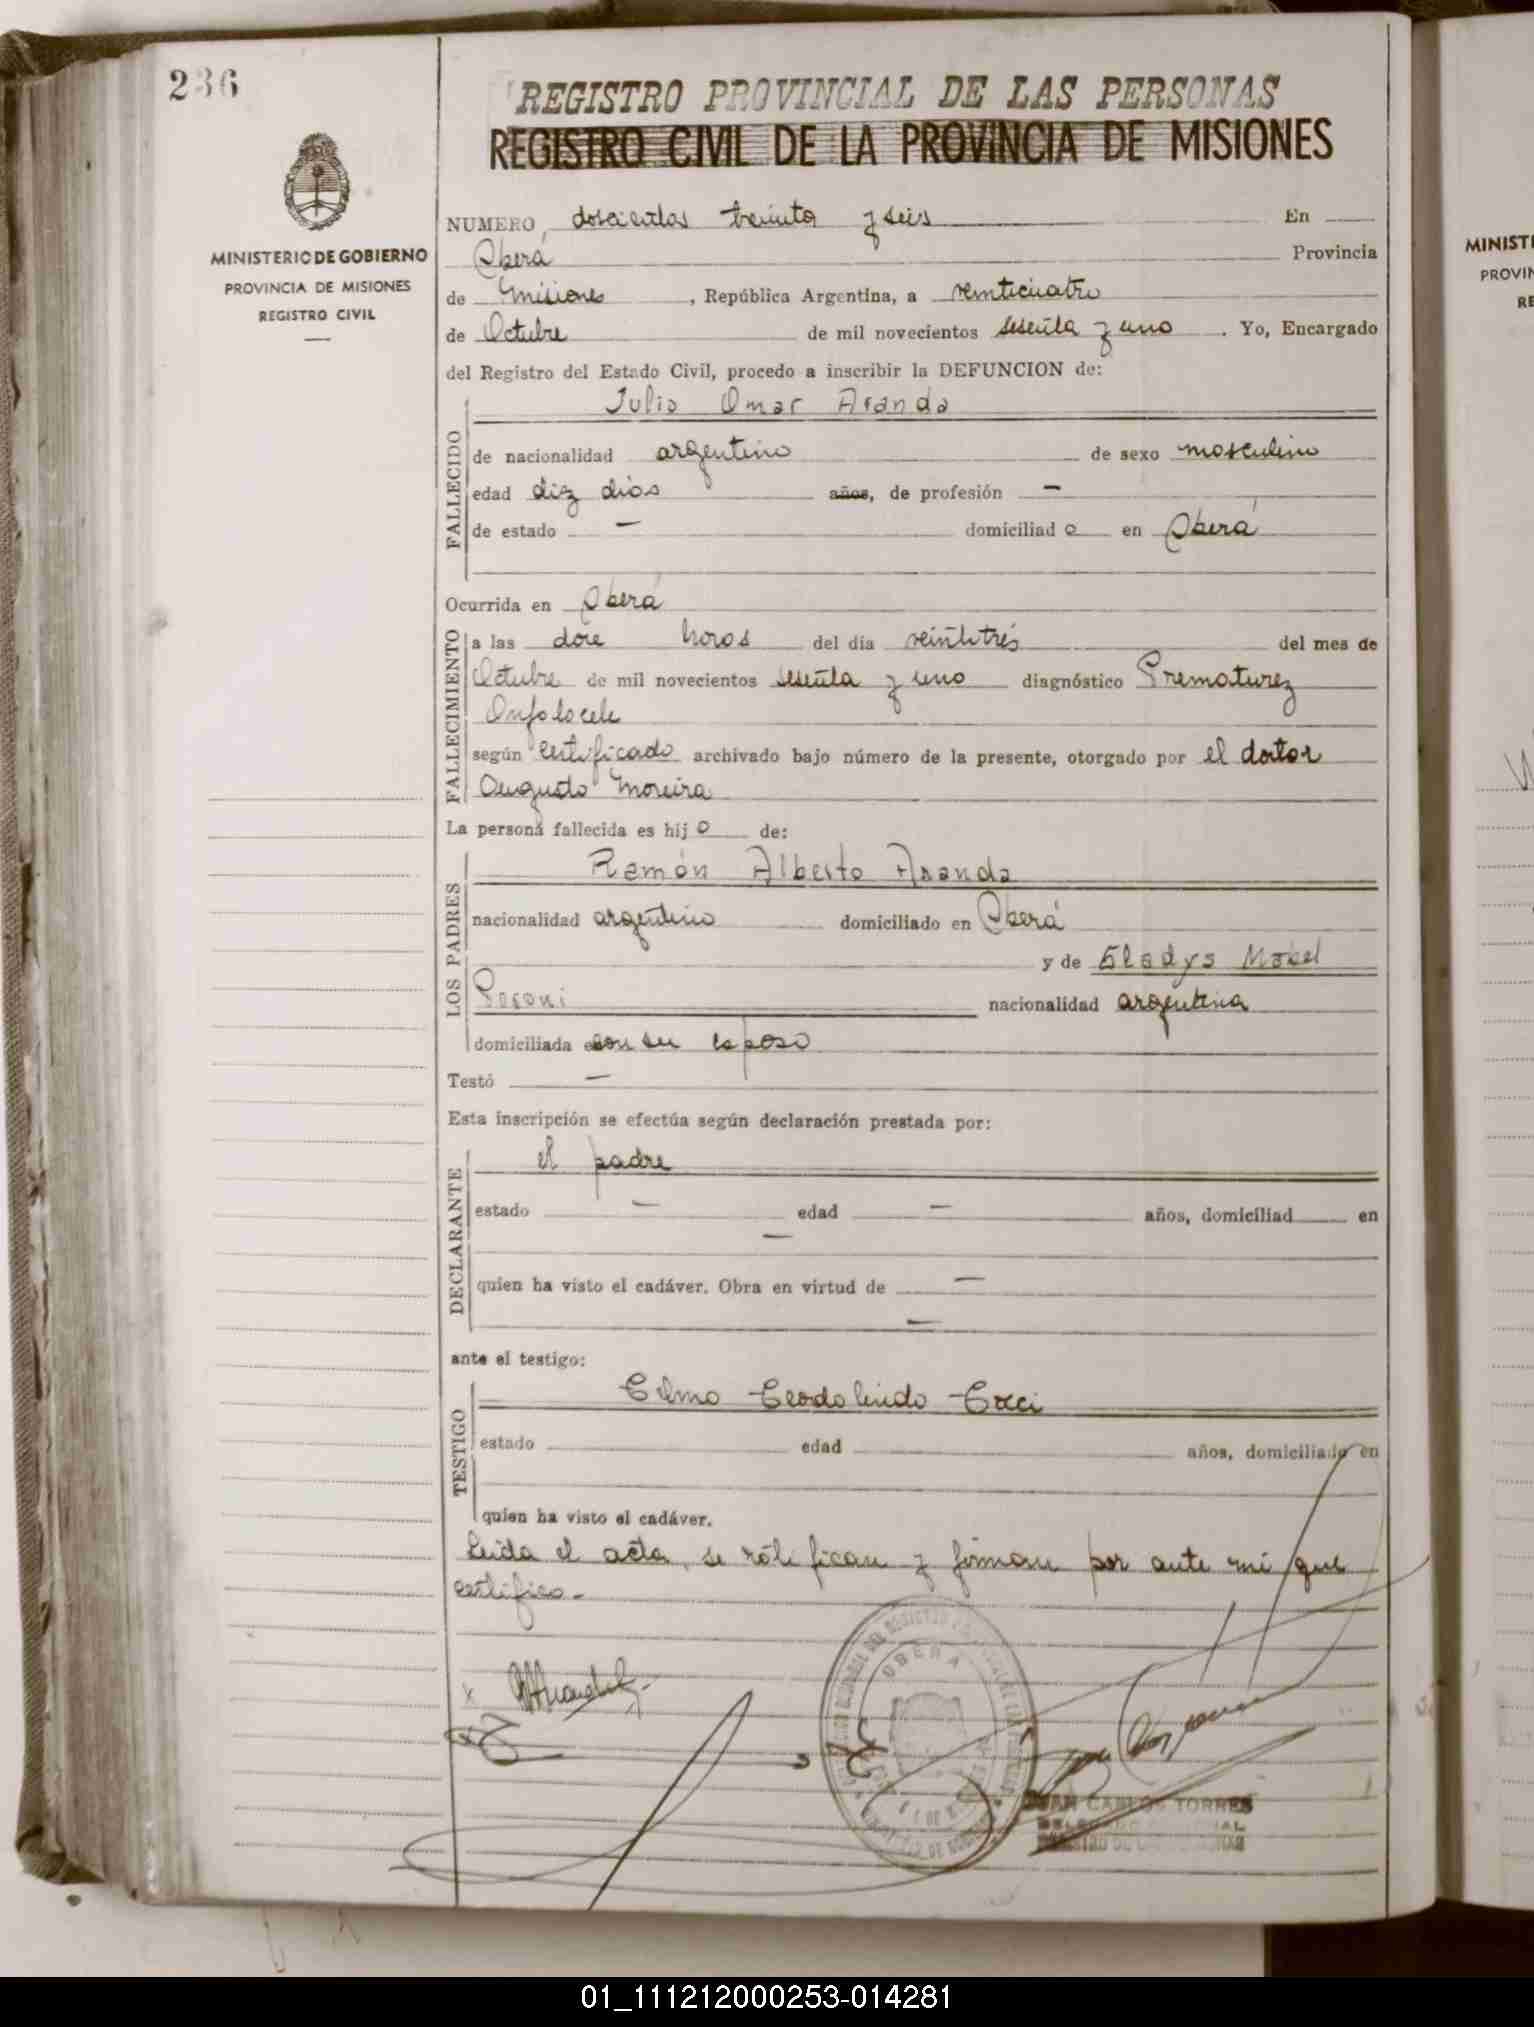 236
REGISTRO PROVINCIAL DE LAS PERSONAS
REGISTRO CIVIL DE LA PROVINCIA DE MISIONES
MINISTERIO DE GOBIERNO
PROVINCIA DE MISIONES
REGISTRO CIVIL
NUMERO doscientos treinta y seis En
Oberá Provincia
de Misiones, República Argentina, a veinticuatro
de Octubre de mil novecientos sesenta y uno. Yo, Encargado
del Registro del Estado Civil, procedo a inscribir la DEFUNCION de:
Julio Omar Aranda
FALLECIDO
de nacionalidad argentino de sexo masculino
edad diez días años, de profesión —
de estado — domiciliado en Oberá
Ocurrida en Oberá
FALLECIMIENTO
a las doce horas del día veintitrés del mes de
Octubre de mil novecientos sesenta y uno diagnóstico Prematurez
Onfalocele
según certificado archivado bajo número de la presente, otorgado por el doctor
Augusto Moreira
La persona fallecida es hijo de:
Ramón Alberto Aranda
LOS PADRES
nacionalidad argentino domiciliado en Oberá
y de Gladys Mabel
nacionalidad argentina
domiciliada con su esposo
Testó —
Esta inscripción se efectúa según declaración prestada por:
el padre
DECLARANTE
estado — edad — años, domiciliad en
—
quien ha visto el cadáver. Obra en virtud de —
—
ante el testigo:
Teodolindo
TESTIGO
estado edad años, domiciliado en
quien ha visto el cadáver.
Leída el acta, se ratifican y firman por ante mí que
certifico.-
OBERA
JUAN CARLOS TORRES
01_111212000253-014281